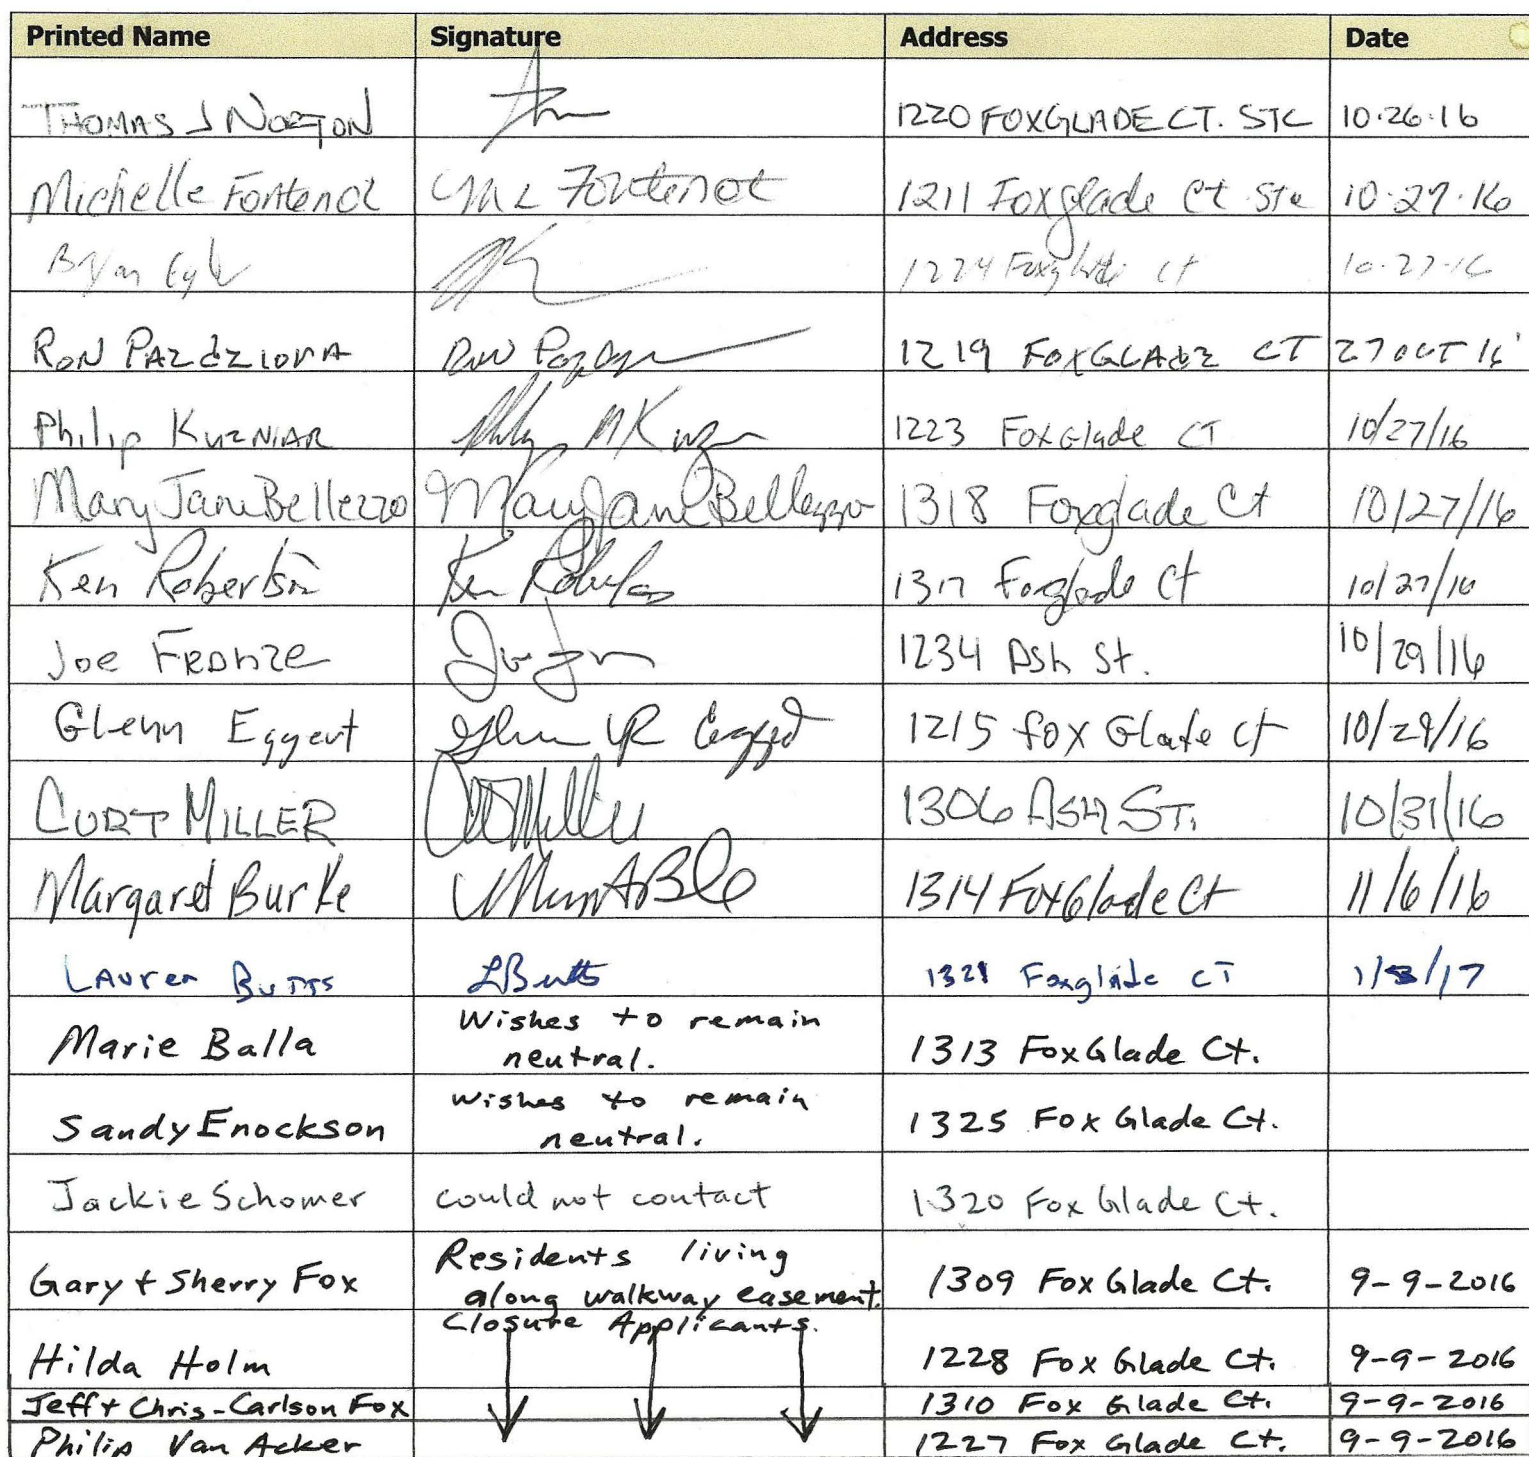 Printed Name Signature Address Date
THOMAS J NORTON 1220 FOXGLADE CT. STC 10·26·16
Michelle Fontenot Fontenot 1211 Foxglade Ct Stc 10·27·16
Bryan 1224 Foxglade ct 10·27·16
RON PAZdZIORA RON 1219 FOXGLAdE CT 27 OCT 16'
Philip KUZNIAR Philip M Kuzn 1223 FoxGlade CT 10/27/16
Mary Jane Bellezzo Mary Jane Bellezzo 1318 Foxglade Ct 10/27/16
Ken Robertson Ken Robertson 1317 Foxglade Ct 10/27/16
Joe Fronze Joe 1234 Ash St. 10/29/16
Glenn Eggert Glenn R Eggert 1215 fox Glade ct 10/29/16
CURT MILLER Miller 1306 ASH ST. 10/31/16
Margaret Burke 1314 FoxGlade Ct 11/6/16
LAuren BuTTS LButts 1321 Foxglade CT 1/ /17
Marie Balla Wishes to remain 1313 Fox Glade Ct.
neutral.
Sandy Enockson wishes to remain 1325 Fox Glade Ct.
neutral.
Jackie Schomer could not contact 1320 Fox Glade Ct.
Gary + Sherry Fox Residents living 1309 Fox Glade Ct. 9-9-2016
along walkway easement.
Closure Applicants.
Hilda Holm 1228 Fox Glade Ct. 9-9-2016
Jeff + Chris-Carlson Fox 1310 Fox Glade Ct. 9-9-2016
Philip Van Acker 1227 Fox Glade Ct. 9-9-2016